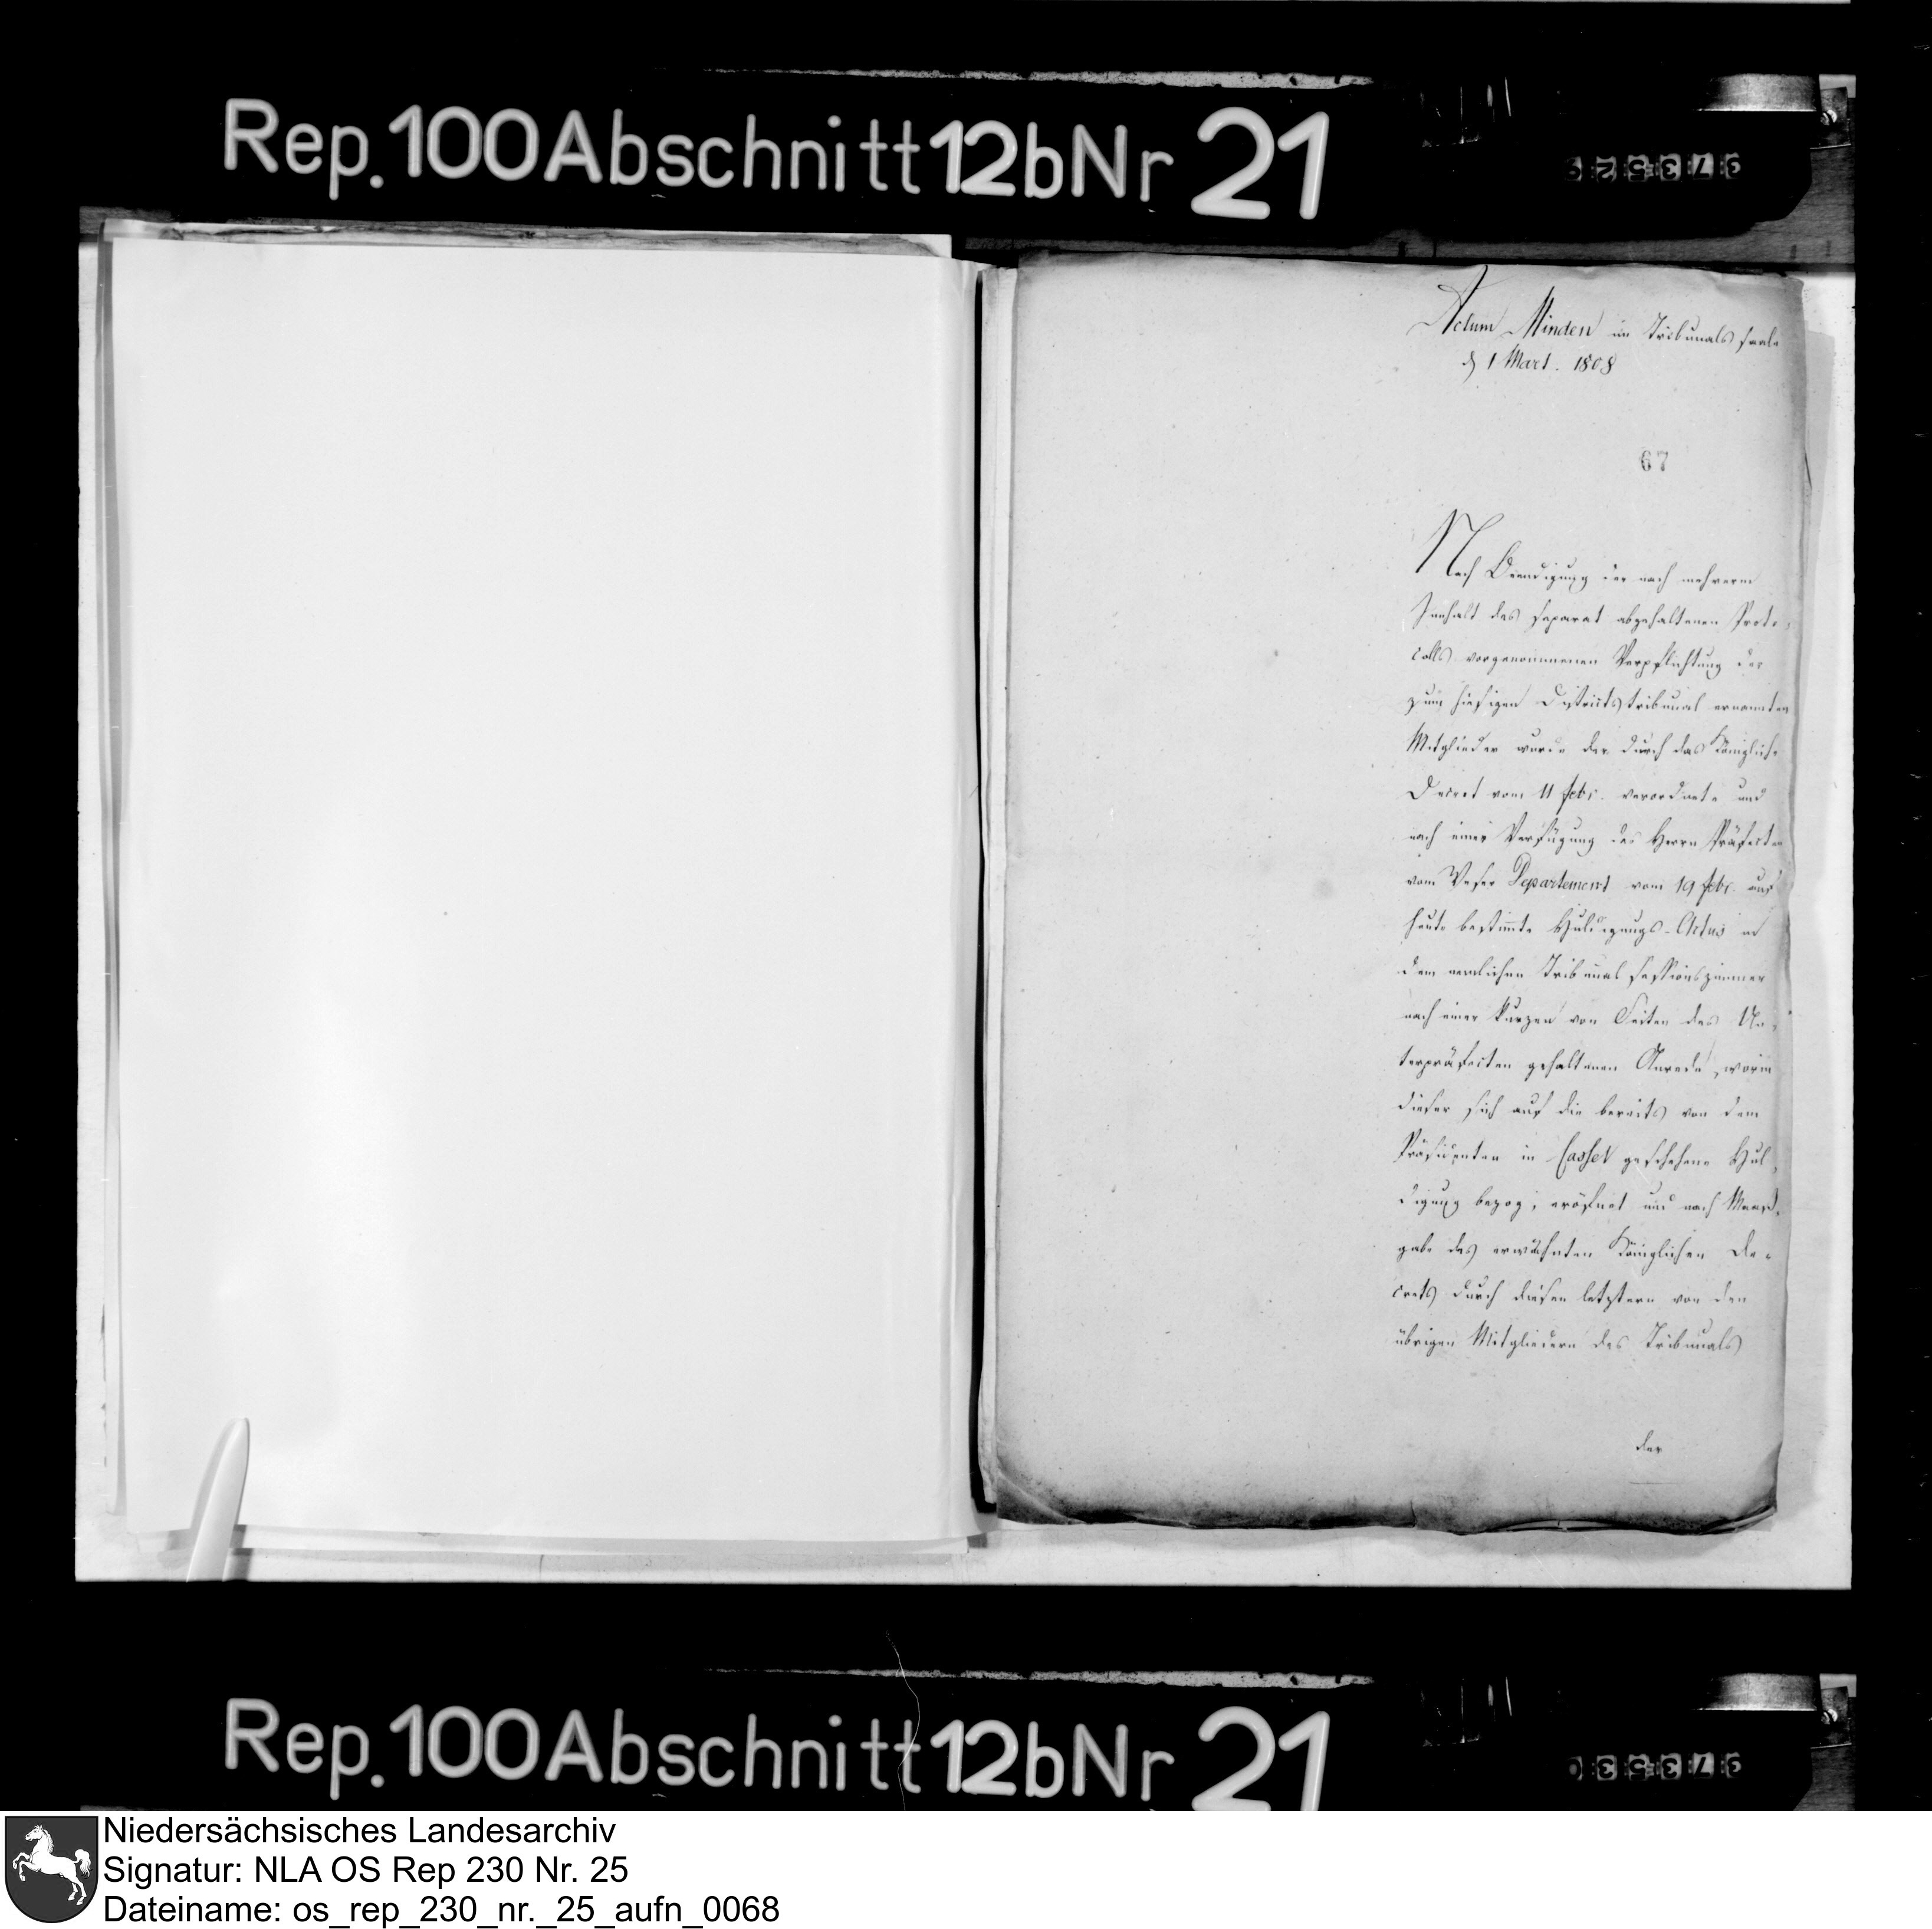 Rep. 100 Abschnitt 12b Nr 21
Actum Minden im Tribunals saale
d 1 Mart. 1808
67
Nach Beendigung der nach mehrerm
Innhalt des separat abgehaltenen Proto-
colls vorgenommenen Verpflichtung der
zum hiesigen Districtstribunal ernannten
Mitglieder wurde der durch das Königliche
Decret vom 11 febr. verordnete und
nach einer Verfügung des Herrn Präfecten
vom Weser Departement vom 19 febr. auf
heute bestimte Huldigungs-Actus in
dem nemlichen Tribunal sessionszimmer
nach einer kurzen von Seiten des Un-
terpräfecten gehaltenen Anrede, worin
dieser sich auf die bereits von dem
Präsidenten in Cassel geschehene Hul-
digung bezog, eröfnet und nach Maas-
gabe des erwähnten Königlichen De-
crets durch diesen letztern von den
übrigen Mitgliedern des Tribunals
der
Rep. 100 Abschnitt 12b Nr 21
Niedersächsisches Landesarchiv
Signatur: NLA OS Rep 230 Nr. 25
Dateiname: os_rep_230_nr._25_aufn_0068